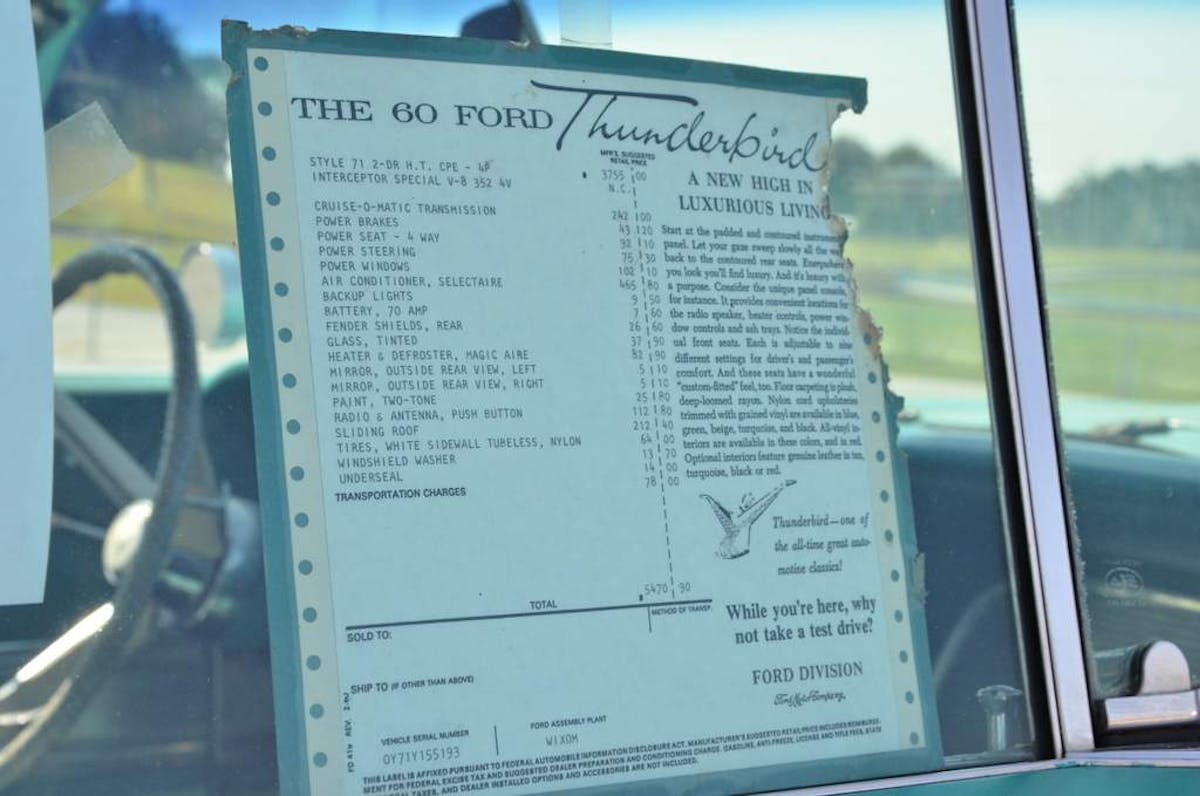 THE 60 FORD Thunderbird
MFR'S SUGGESTED
RETAIL PRICE
STYLE 71 2-DR H.T. CPE - 4P 3755 00
INTERCEPTOR SPECIAL V-8 352 4V N.C.
CRUISE-O-MATIC TRANSMISSION 242 00
POWER BRAKES 43 20
POWER SEAT - 4 WAY 92 10
POWER STEERING 75 30
POWER WINDOWS 102 10
AIR CONDITIONER, SELECTAIRE 465 80
BACKUP LIGHTS 9 50
BATTERY, 70 AMP 7 60
FENDER SHIELDS, REAR 26 60
GLASS, TINTED 37 90
HEATER & DEFROSTER, MAGIC AIRE 82 90
MIRROR, OUTSIDE REAR VIEW, LEFT 5 10
MIRROR, OUTSIDE REAR VIEW, RIGHT 5 10
PAINT, TWO-TONE 25 80
RADIO & ANTENNA, PUSH BUTTON 112 80
SLIDING ROOF 212 40
TIRES, WHITE SIDEWALL TUBELESS, NYLON 64 00
WINDSHIELD WASHER 13 70
UNDERSEAL 14 00
TRANSPORTATION CHARGES 78 00
TOTAL 5470 90
A NEW HIGH IN
LUXURIOUS LIVING
Start at the padded and contoured instrument
panel. Let your gaze sweep slowly all the way
back to the contoured rear seats. Everywhere
you look you'll find luxury. And it's luxury with
a purpose. Consider the unique panel console,
for instance. It provides convenient locations for
the radio speaker, heater controls, power win-
dow controls and ash trays. Notice the individ-
ual front seats. Each is adjustable to nine
different settings for driver's and passenger's
comfort. And these seats have a wonderful
"custom-fitted" feel, too. Floor carpeting is plush,
deep-loomed rayon. Nylon cord upholsteries
trimmed with grained vinyl are available in blue,
green, beige, turquoise, and black. All-vinyl in-
teriors are available in these colors, and in red.
Optional interiors feature genuine leather in tan,
turquoise, black or red.
Thunderbird—one of
the all-time great auto-
motive classics!
METHOD OF TRANSP.
While you're here, why
not take a test drive?
FORD DIVISION
Ford Motor Company,
SOLD TO:
SHIP TO (IF OTHER THAN ABOVE)
VEHICLE SERIAL NUMBER
0Y71Y155193
FORD ASSEMBLY PLANT
WIXOM
THIS LABEL IS AFFIXED PURSUANT TO FEDERAL AUTOMOBILE INFORMATION DISCLOSURE ACT. MANUFACTURER'S SUGGESTED RETAIL PRICE INCLUDES REIMBURSE-
MENT FOR FEDERAL EXCISE TAX AND SUGGESTED DEALER PREPARATION AND CONDITIONING CHARGE. GASOLINE, ANTI-FREEZE, LICENSE AND TITLE FEES, STATE
TAXES, AND DEALER INSTALLED OPTIONS AND ACCESSORIES ARE NOT INCLUDED.